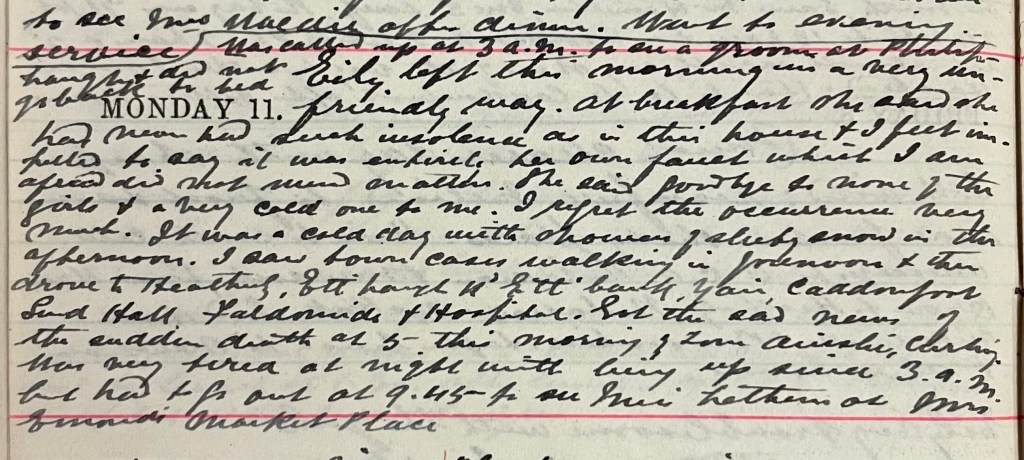 to see Mrs after dinner. Went to evening
service Was called up at 3 a.m. to see a groom at Philip-
haugh & did not Eily left this morning in a very un-
go back to bed
MONDAY 11. friendly way. At breakfast she said she
had never had such insolence as in this house & I felt im-
pelled to say it was entirely her own fault which I am
afraid did not mend matters. She said goodbye to none of the
girls & a very cold one to me. I regret the occurrence very
much. It was a cold day with showers of sleety snow in the
afternoon. I saw town cases walking in forenoon & then
drove to Ettk haugh Ettk bank, Yair, Caddonfoot
Sund Hall Faldonside & Hospital. Got the sad news of
the sudden death at 5 this morning of Tom
Was very tired at night with being up since 3. a.m.
but had to go out at 9.45 to see Miss at Mrs
Market Place